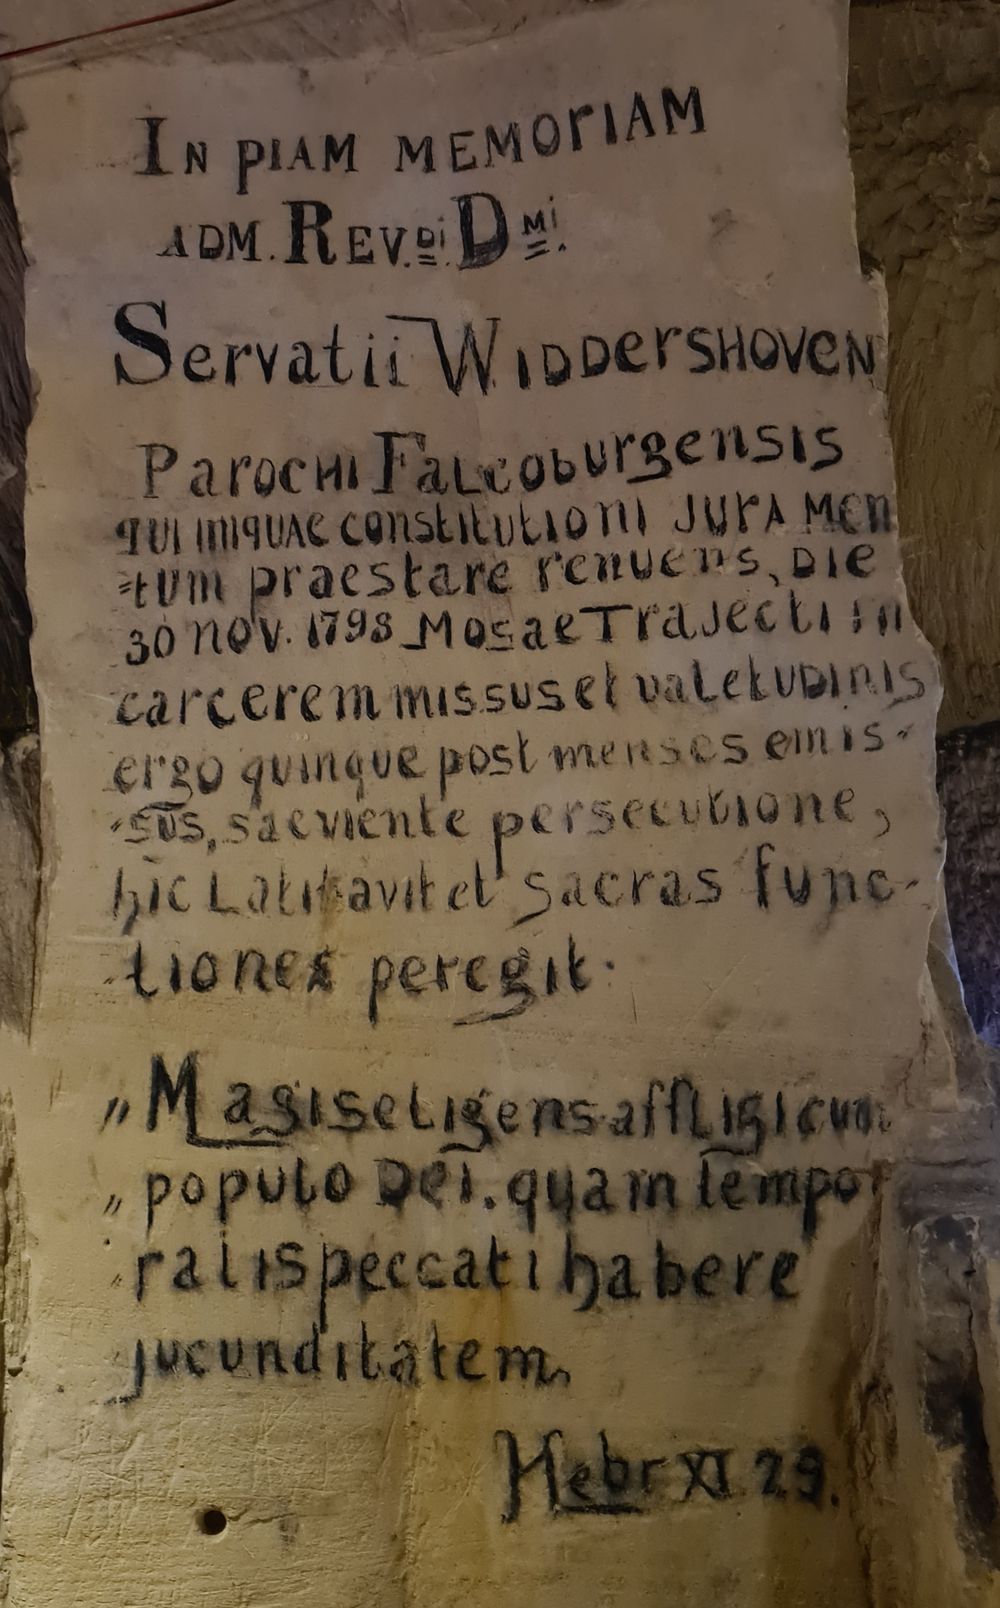 In piam memoriam
adm. Rev.di. Dmi.
Servatii Widdershoven
Parochi Falcoburgensis
qui iniquae constitutioni juramen
=tum praestare renuens, die
30 nov. 1798 Mosae Trajecti in
carcerem missus et valetudinis
ergo quinque post menses emis-
-sus, saeviente persecutione,
hic Latitavit et sacras func-
tiones peregit.
„Magis eligens affligi cum
„populo Dei. quam tempo
„ralis peccati habere
jucunditatem.
Hebr XI 29.